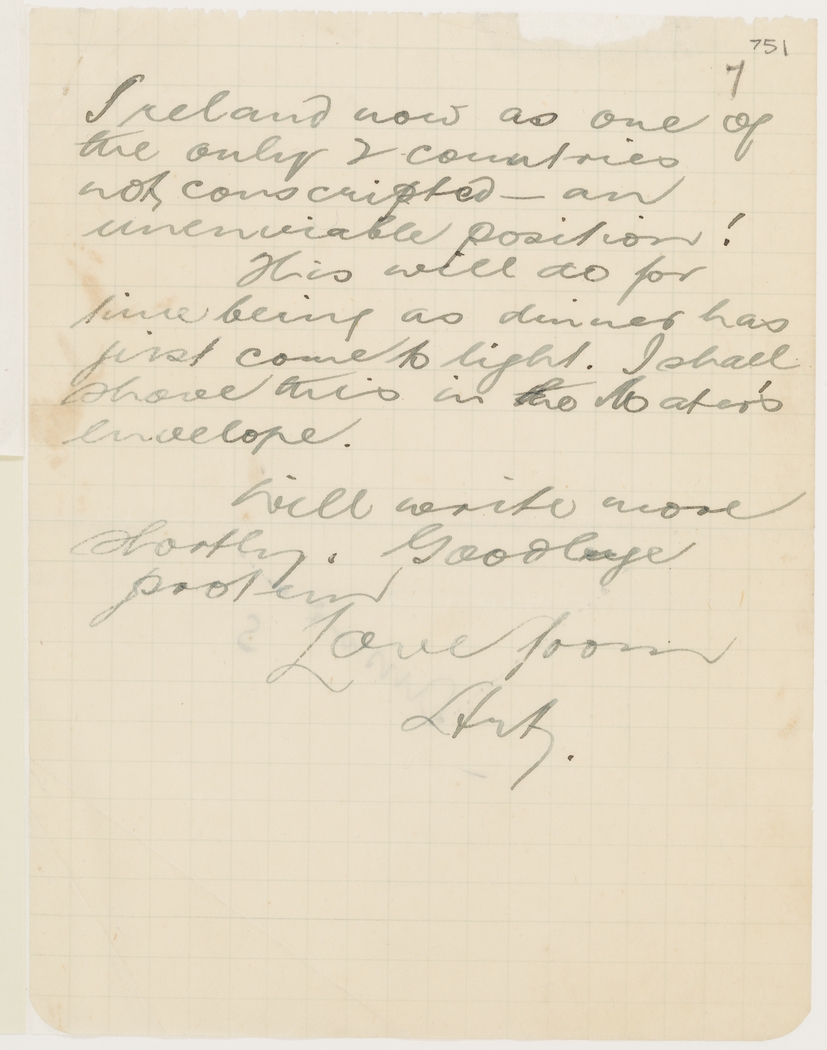 751
7
Ireland now as one of
the only 2 countries
not conscripted — an
unenviable position!
This will do for
time being as dinner has
just come to light. I shall
shove this in the Mater's
envelope.
Will write more
shortly. Goodbye
pro tem
Love from
Art.